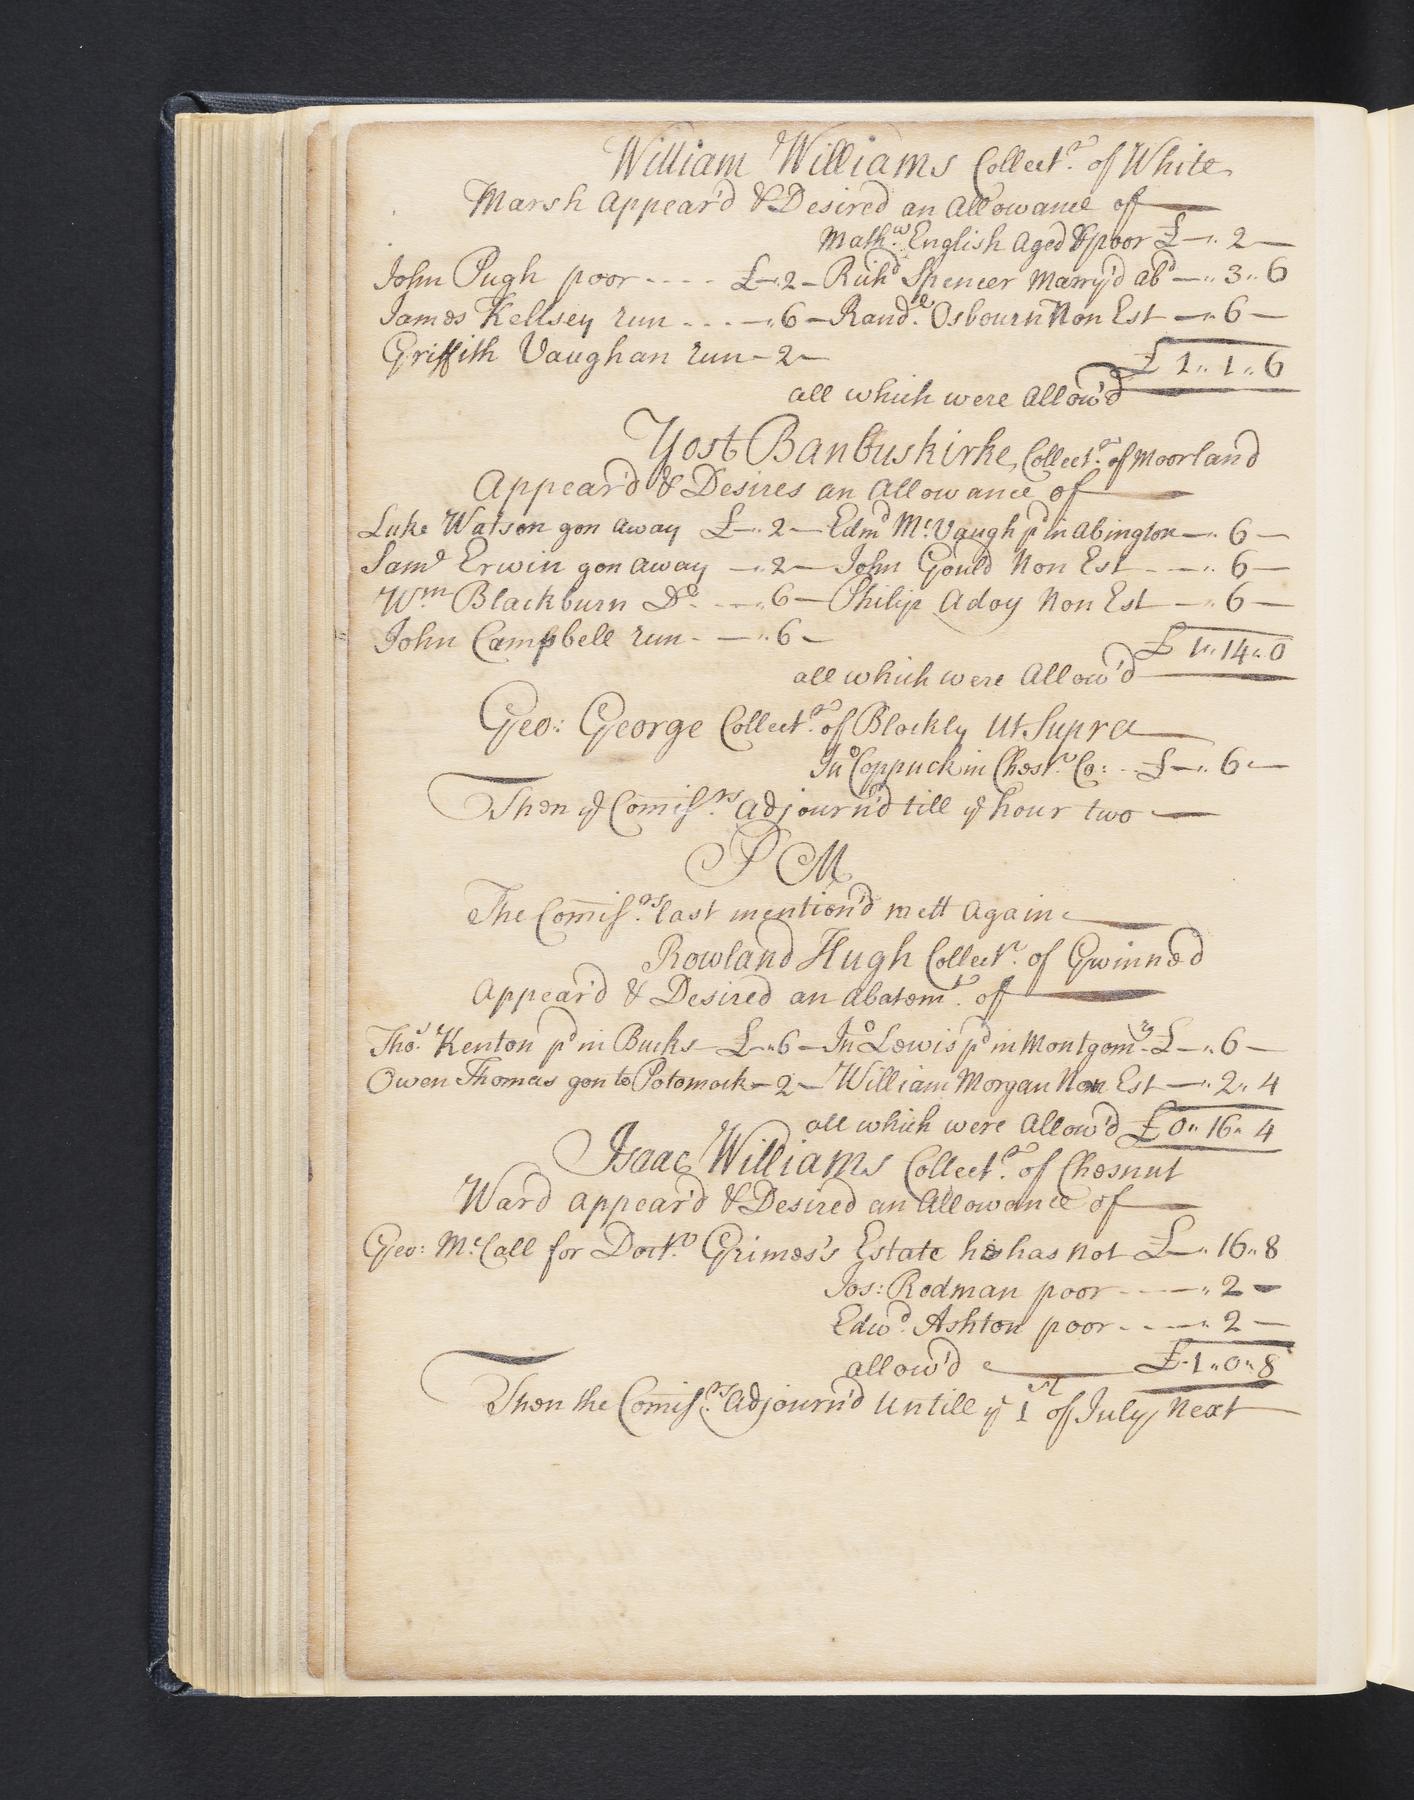 William Williams Collectr. of White
Marsh Appear'd & Desired an Allowance of
Mathw. English Aged & poor £ —„ 2 —
John Pugh poor - - - - £ —„ 2 — Richd Spencer Marry'd abd —„ 3„ 6
James Kellsey run - - - —„ 6 — Randl. Osbourn Non Est —„ 6 —
Griffith Vaughan run - 2 — £ 1„ 1„ 6
all which were Allow'd
Yost Banbuskirke, Collectr. of Moorland
Appear'd & Desires an Allowance of
Luke Watson gon away £ —„ 2 — Edmd Mc. Vaugh pd in Abington —„ 6 —
Saml Erwin gon away —„ 2 — John Gould Non Est - - —„ 6 —
Wm Blackburn Do. - - —„ 6 — Philip Adoy Non Est —„ 6 —
John Campbell run - —„ 6 — £ 1„ 14„ 0
all which were Allow'd
Geo: George Collectr. of Blockly Ut Supra
Jno Coppuck in Chestr. Co: - - £ —„ 6 —
Then ye Comissrs. adjourn'd till ye hour two
P M
The Comissrs. last mention'd mett Again
Rowland Hugh Collectr. of Gwinned
Appear'd & Desired an abatemt. of
Thos. Kenton pd in Bucks £ —„ 6 — Jno Lewis pd in Montgomry - £ —„ 6 —
Owen Thomas gon to Potomock - 2 — William Morgan Non Est —„ 2„ 4
all which were Allow'd £ 0„ 16„ 4
Isaac Williams Collectr. of Chesnut
Ward appear'd & Desired an Allowance of
Geo: Mc. Call for Doctr. Grimes's Estate he has not £ —„ 16„ 8
Jos: Rodman poor - - - —„ 2 —
Edwd. Ashton poor - - - —„ 2 —
allow'd £ - 1„ 0„ 8
Then the Comissrs. adjourn'd Untill ye 1st of July Next